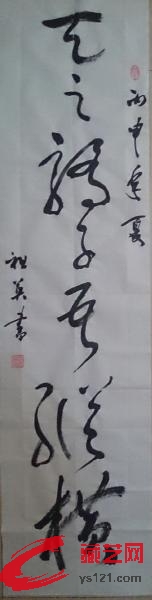 丙申年夏
天之骄子任纵横
祖英书
藏艺网
ys121.com